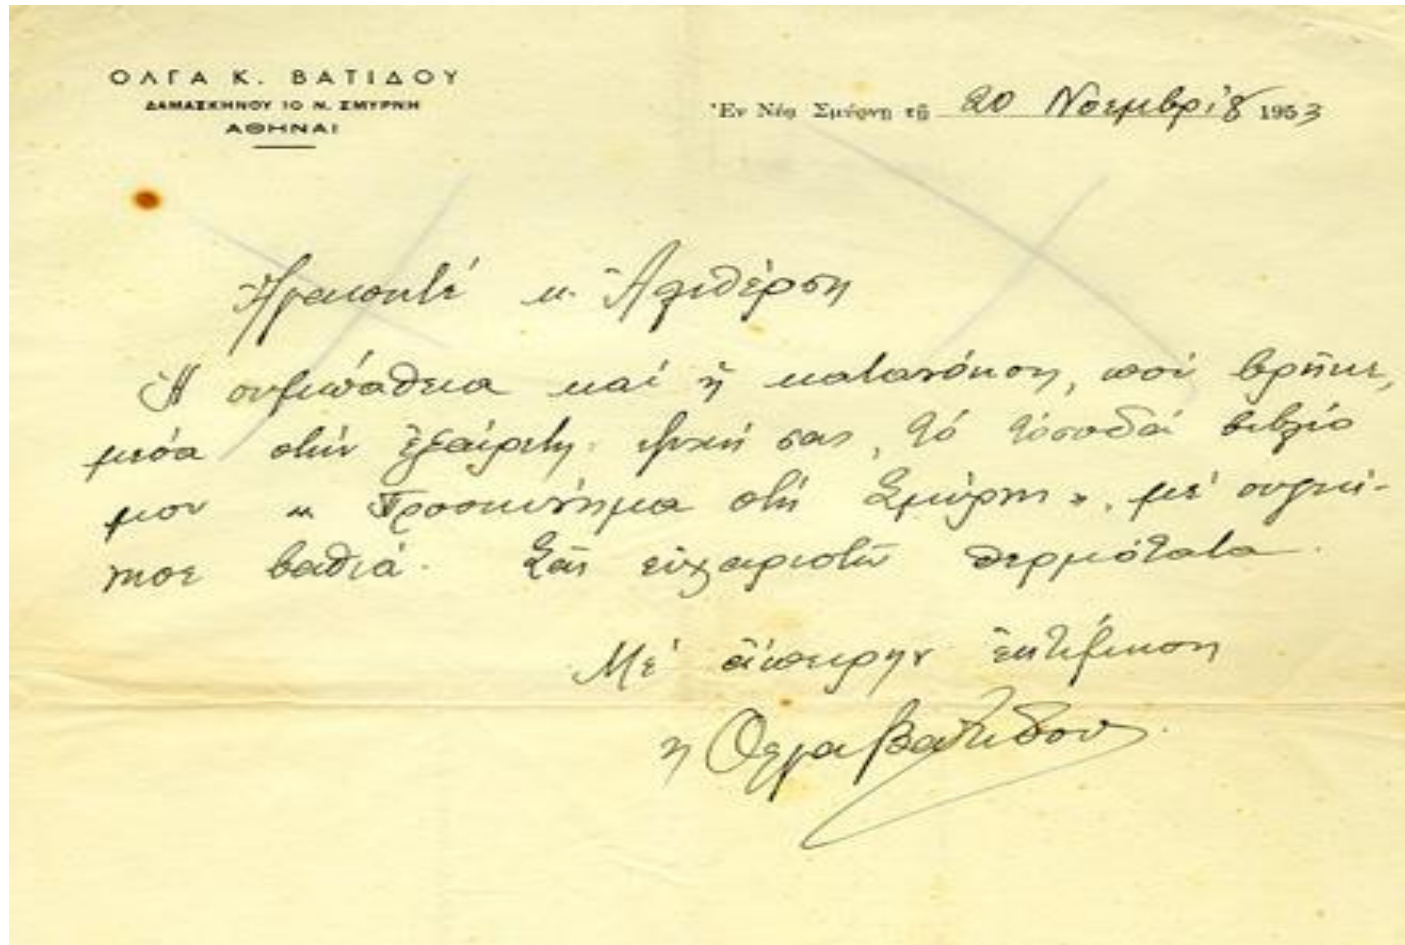 ΟΛΓΑ Κ. ΒΑΤΙΔΟΥ
ΔΑΜΑΣΚΗΝΟΥ 10 Ν. ΣΜΥΡΝΗ
ΑΘΗΝΑΙ
Ἐν Νέᾳ Σμύρνῃ τῇ 20 Νοεμβρίου 1953
Ἀγαπητέ κ. Ἀλιθέρση
Ἡ συμπάθεια καί ἡ κατανόηση, πού βρῆκε,
μέσα στήν ἐξαίρετη ψυχή σας, τό βιβλίο
μου « Προσκύνημα στή Σμύρνη », μέ συγκί-
νησε βαθιά. Σᾶς εὐχαριστῶ θερμότατα.
Μέ ἄπειρην ἐκτίμηση
ἡ Ὄλγα Βατίδου